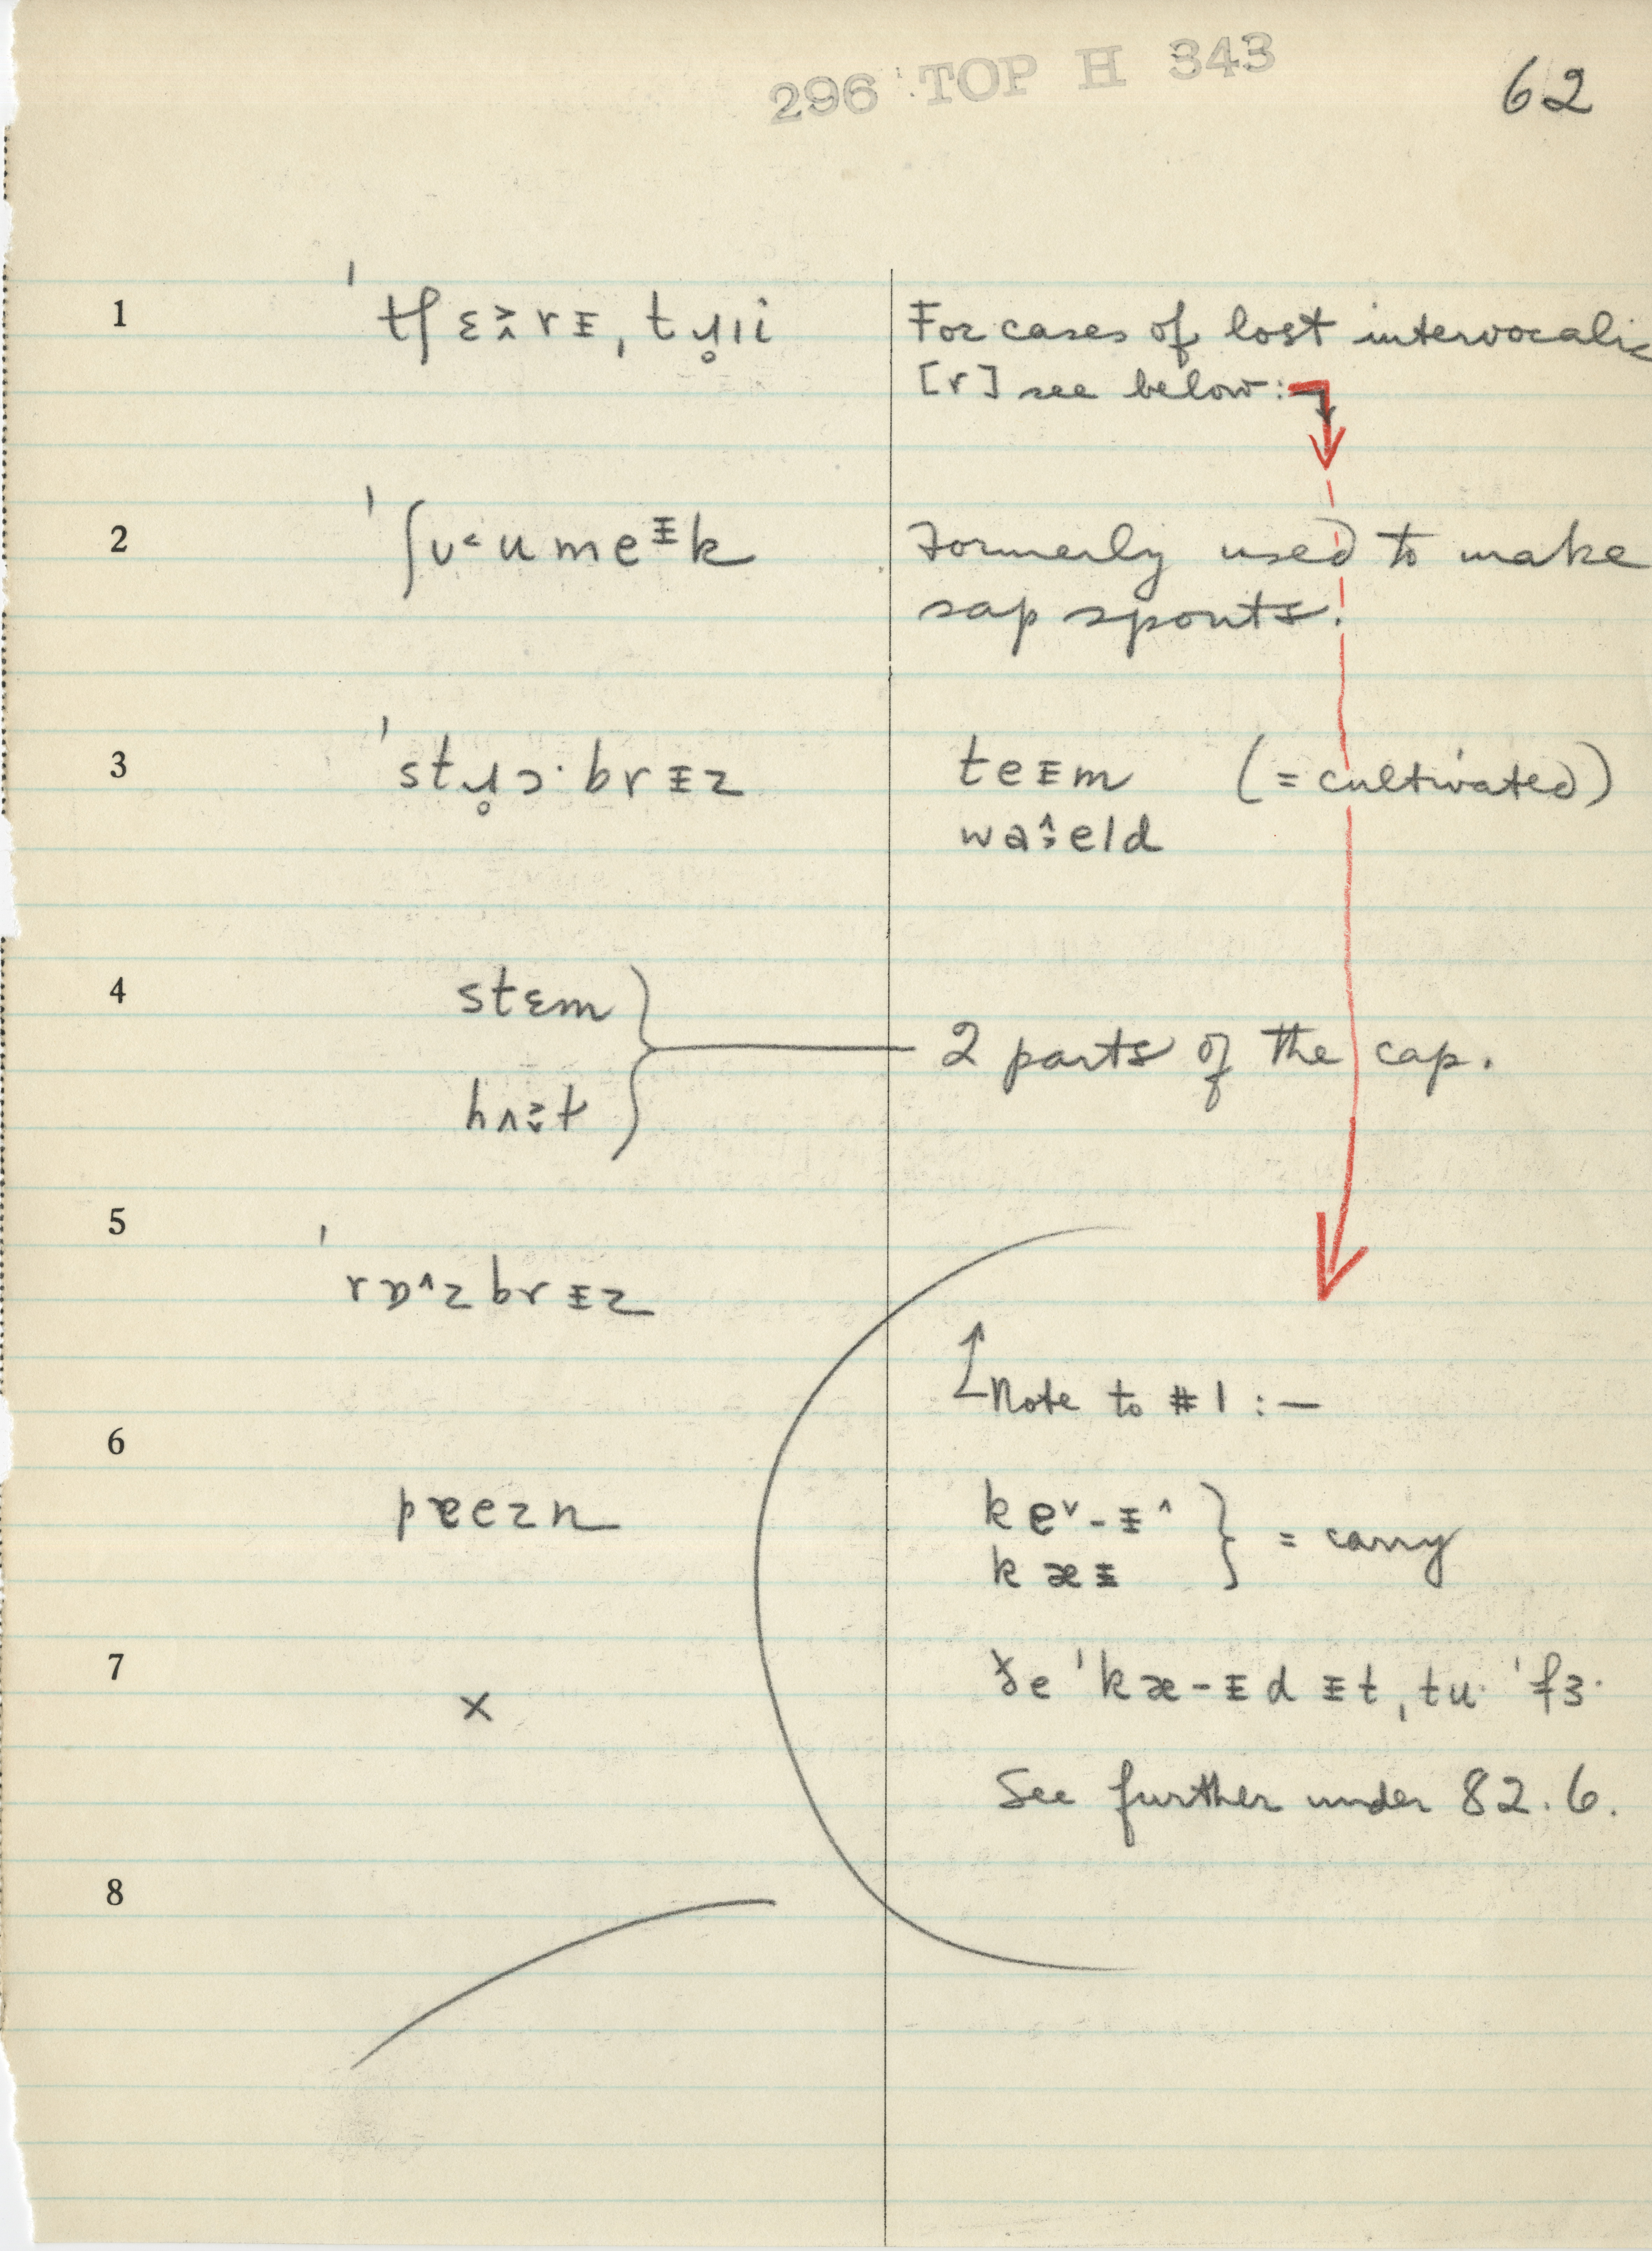 296 TOP H 343
62
1
ˈtʃɛ˃˰rɨ, ˌtɹ̥ıi
For cases of lost intervocalic
[r] see below:
2
ˈʃʊ˂umeᵻk
Formerly used to make
sap spouts.
3
ˈstɹ̥ɔ·brɨz
teɨm (= cultivated)
waɨ^eld
4
stɛm
2 parts of the cap.
hʌ˃˯t
5
ˈrɒ^zbrɨz
Note to #1:—
6
pæezn
ke˅-ɨ^
= carry
kæɨ
7
x
ðe ˈkæ-ɨd ɨt ˌtu· ˈfɜ·
See further under 82.6.
8